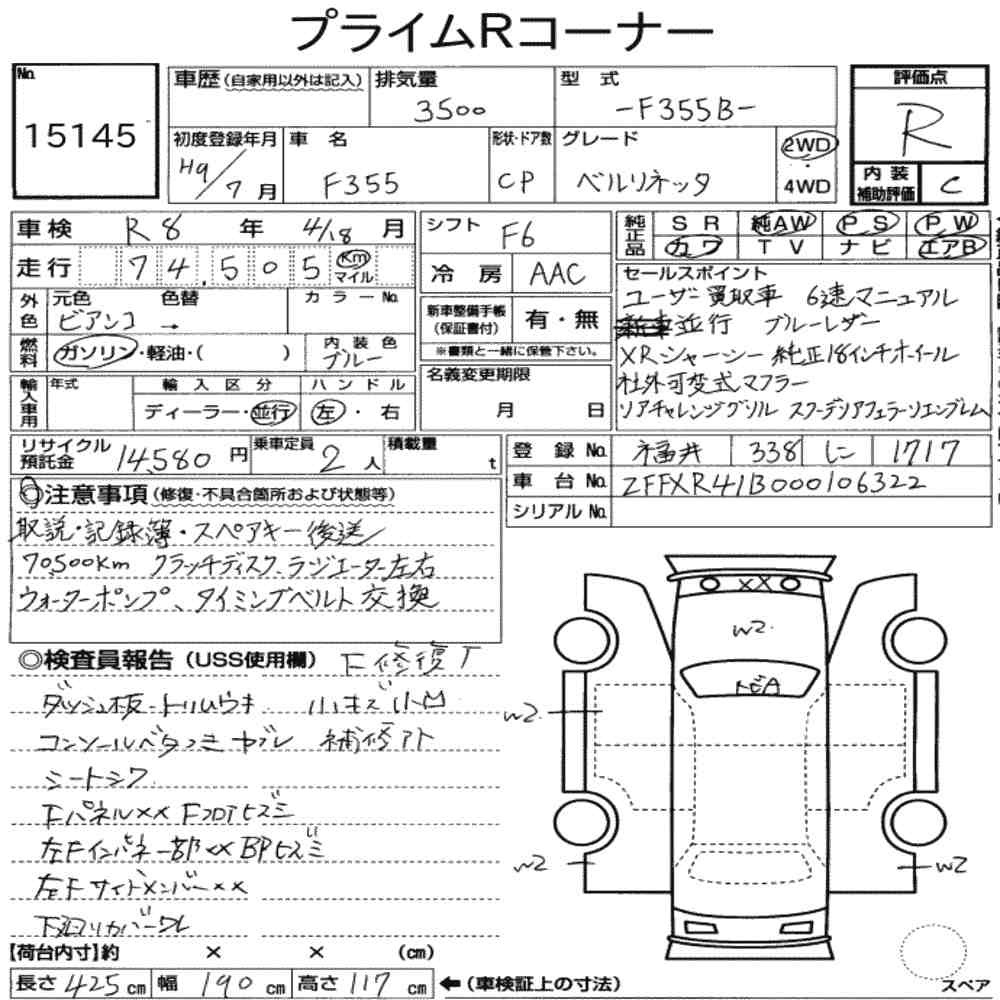 プライムRコーナー
No. 15145
車歴 (自家用以外は記入) 排気量 3500 型式 -F355B- 評価点 R
初度登録年月 H9/7月 車名 F355 形状・ドア数 CP グレード ベルリネッタ 2WD・4WD 内装補助評価 C
車検 R8年 4/18月 シフト F6 純正品 SR 純AW PS PW
カワ TV ナビ エアB
走行 74,505 Km マイル 冷房 AAC
セールスポイント
ユーザー買取車 6速マニュアル
新車並行 ブルーレザー
XRシャーシー 純正18インチホイール
社外可変式マフラー
リアチャレンジグリル スクーデリアフェラーリエンブレム
外色 元色 ビアンコ 色替 → カラーNo.
新車整備手帳(保証書付) 有・無
※書類と一緒に保管下さい。
燃料 ガソリン・軽油・( ) 内装色 ブルー
名義変更期限 月 日
輸入車用 年式 輸入区分 ディーラー・並行 ハンドル 左・右
リサイクル預託金 14,580円 乗車定員 2人 積載量 t
登録No. 福井 338 に 1717
車台No. ZFFXR41B000106322
シリアルNo.
◎注意事項 (修復・不具合箇所および状態等)
取説・記録簿・スペアキー後送
70,500km クラッチディスク、ラジエーター左右
ウォーターポンプ、タイミングベルト交換
◎検査員報告 (USS使用欄) F修復了
ダッシュ板・トリムウキ 小キズ小凹
コンソールベタつきヤブレ 補修アト
シートシワ
FパネルXX Fフロアヒズミ
左Fインパネ一部XX BPヒズミ
左FサイドメンバーXX
下廻りカバーワレ
XX
W2
トビA
W2
W2
W2
【荷台内寸】約 × × (cm)
長さ 425cm 幅 190cm 高さ 117cm ←(車検証上の寸法)
スペア